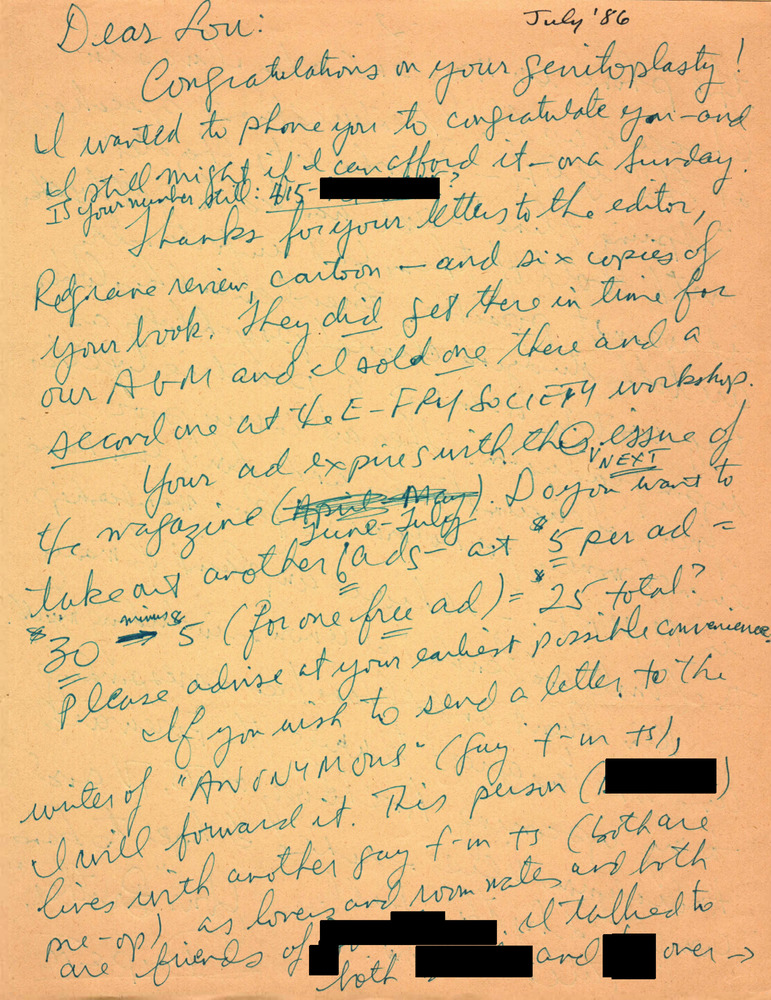 July '86
Dear Lou:
Congratulations on your genitoplasty!
I wanted to phone you to congratulate you — and
I still might if I can afford it — on a Sunday.
Is your number still: 415- ?
Thanks for your letters to the editor,
Redgrave review, cartoon — and six copies of
your book. They did get there in time for
our AGM and I sold one there and a
second one at the E-FRY SOCIETY workshop.
Your ad expires with the issue of
NEXT
the magazine (April-May). Do you want to
June-July
take out another 6 ads — at $5 per ad =
$30 minus $5 (for one free ad) = $25 total?
Please advise at your earliest possible convenience.
If you wish to send a letter to the
writer of "ANONYMOUS" (gay f-m ts),
I will forward it. This person ( )
lives with another gay f-m ts (both are
pre-op) as lovers and roommates and both
are friends of I talked to
both and over →